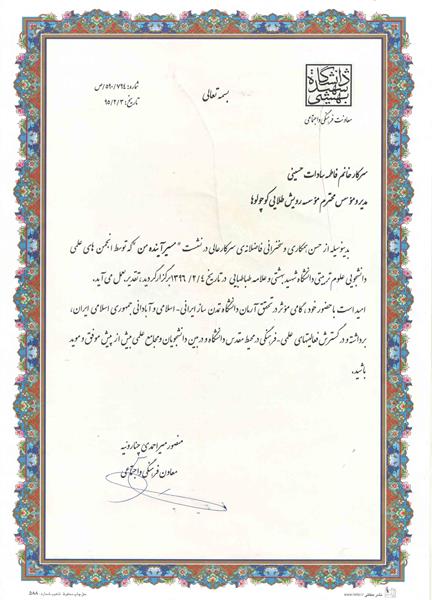 دانشگاه شهید بهشتی
معاونت فرهنگی و اجتماعی
بسمه تعالی
شماره: ۵۹۰/۷۶۴/ص
تاریخ: ۹۵/۲/۳
سرکار خانم فاطمه سادات حسینی
مدیر و مؤسس محترم مؤسسه رویش طلایی کوچولوها
بدینوسیله از حسن همکاری و سخنرانی فاضلانه‌ی سرکارعالی در نشست "مسیر آینده من" که توسط انجمن های علمی
دانشجویی علوم تربیتی دانشگاه شهید بهشتی و علامه طباطبایی در تاریخ ۱۳۹۶/۲/۴ برگزار گردید؛ تقدیر بعمل می آید.
امید است با حضور خود، گامی مؤثر در تحقق آرمان دانشگاه تمدن ساز ایرانی-اسلامی و آبادانی جمهوری اسلامی ایران،
برداشته و در گسترش فعالیتهای علمی-فرهنگی در محیط مقدس دانشگاه و در بین دانشجویان و مجامع علمی بیش از پیش موفق و موید
باشید.
منصور میراحمدی چناروئیه
معاون فرهنگی و اجتماعی
نشر عقابی
حق چاپ محفوظ شماره: ۵۸۸